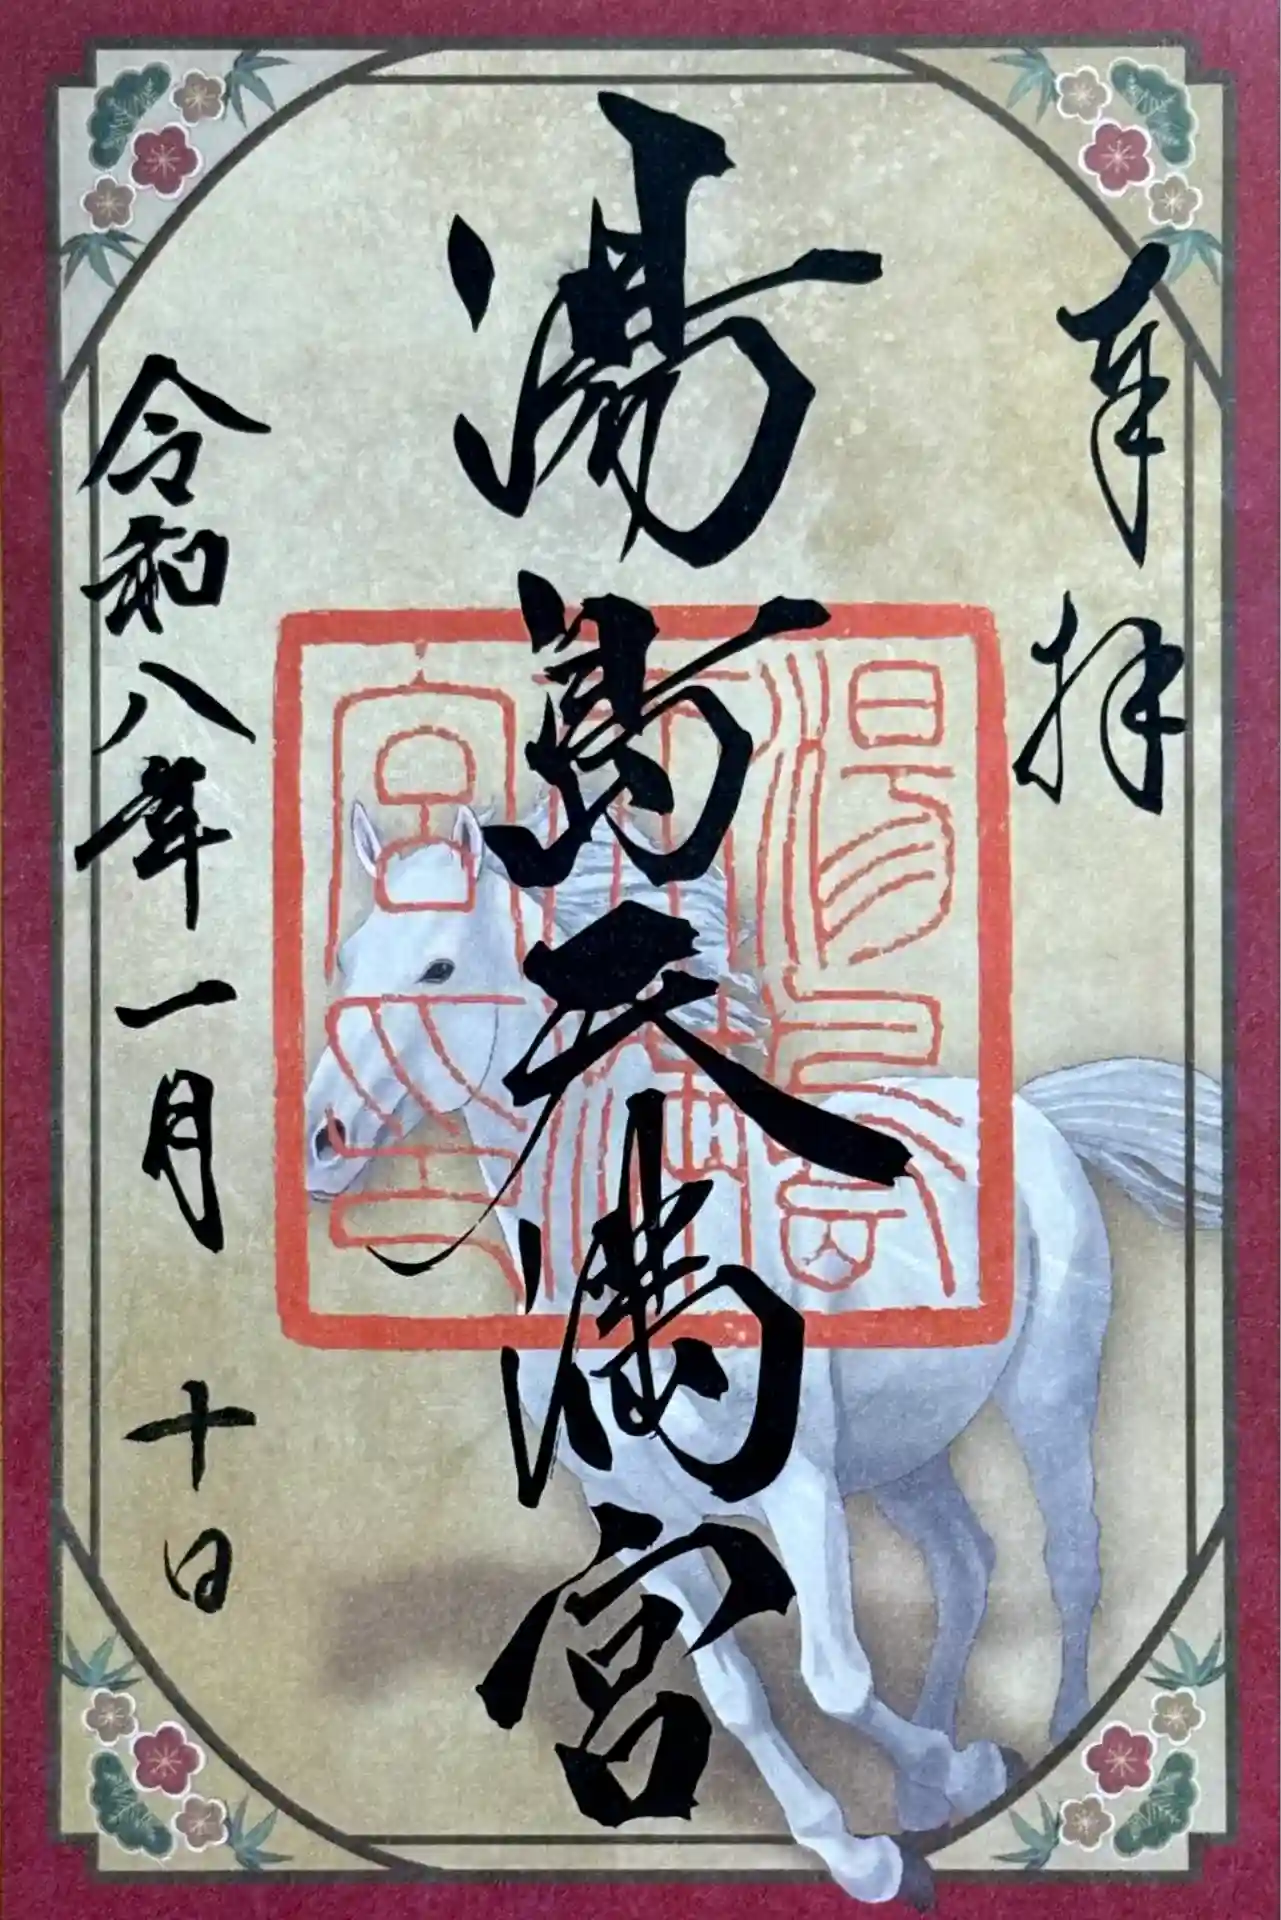 奉拝
湯島天満宮
湯島
天満
宮印
令和八年一月十日